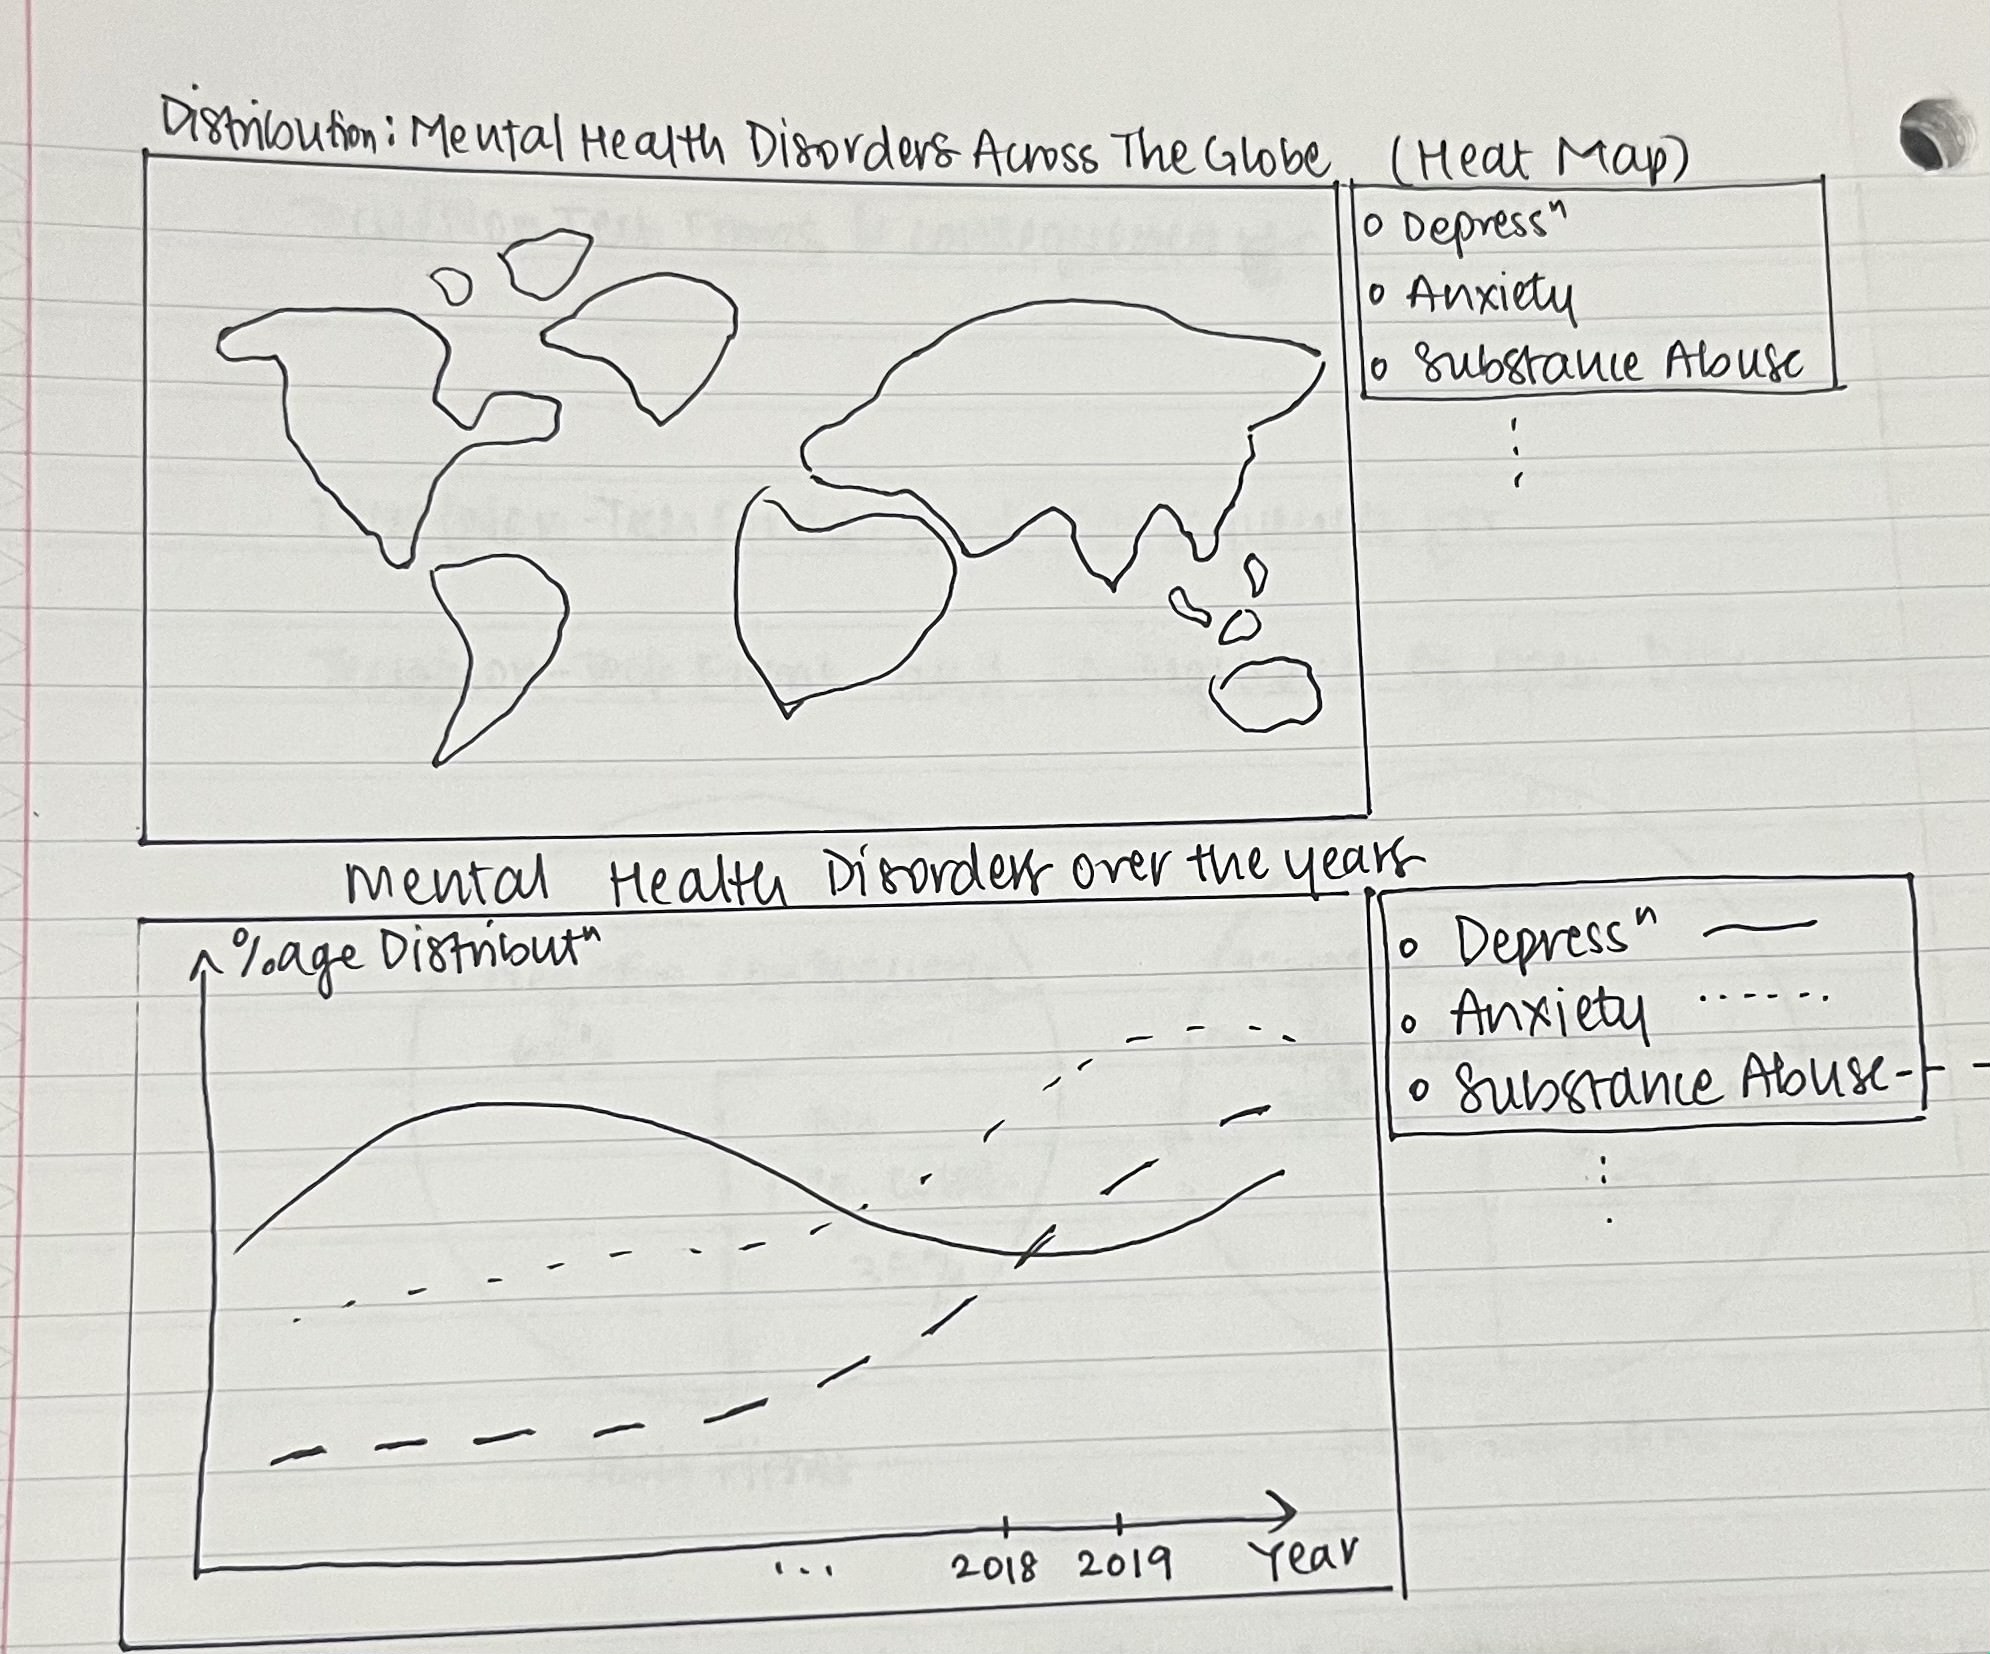 Distribution: Mental Health Disorders Across The Globe (Heat Map)
Depressⁿ
Anxiety
Substance Abuse
Mental Health Disorders over the years
%age Distributⁿ
Depressⁿ
Anxiety
Substance Abuse
... 2018 2019 Year